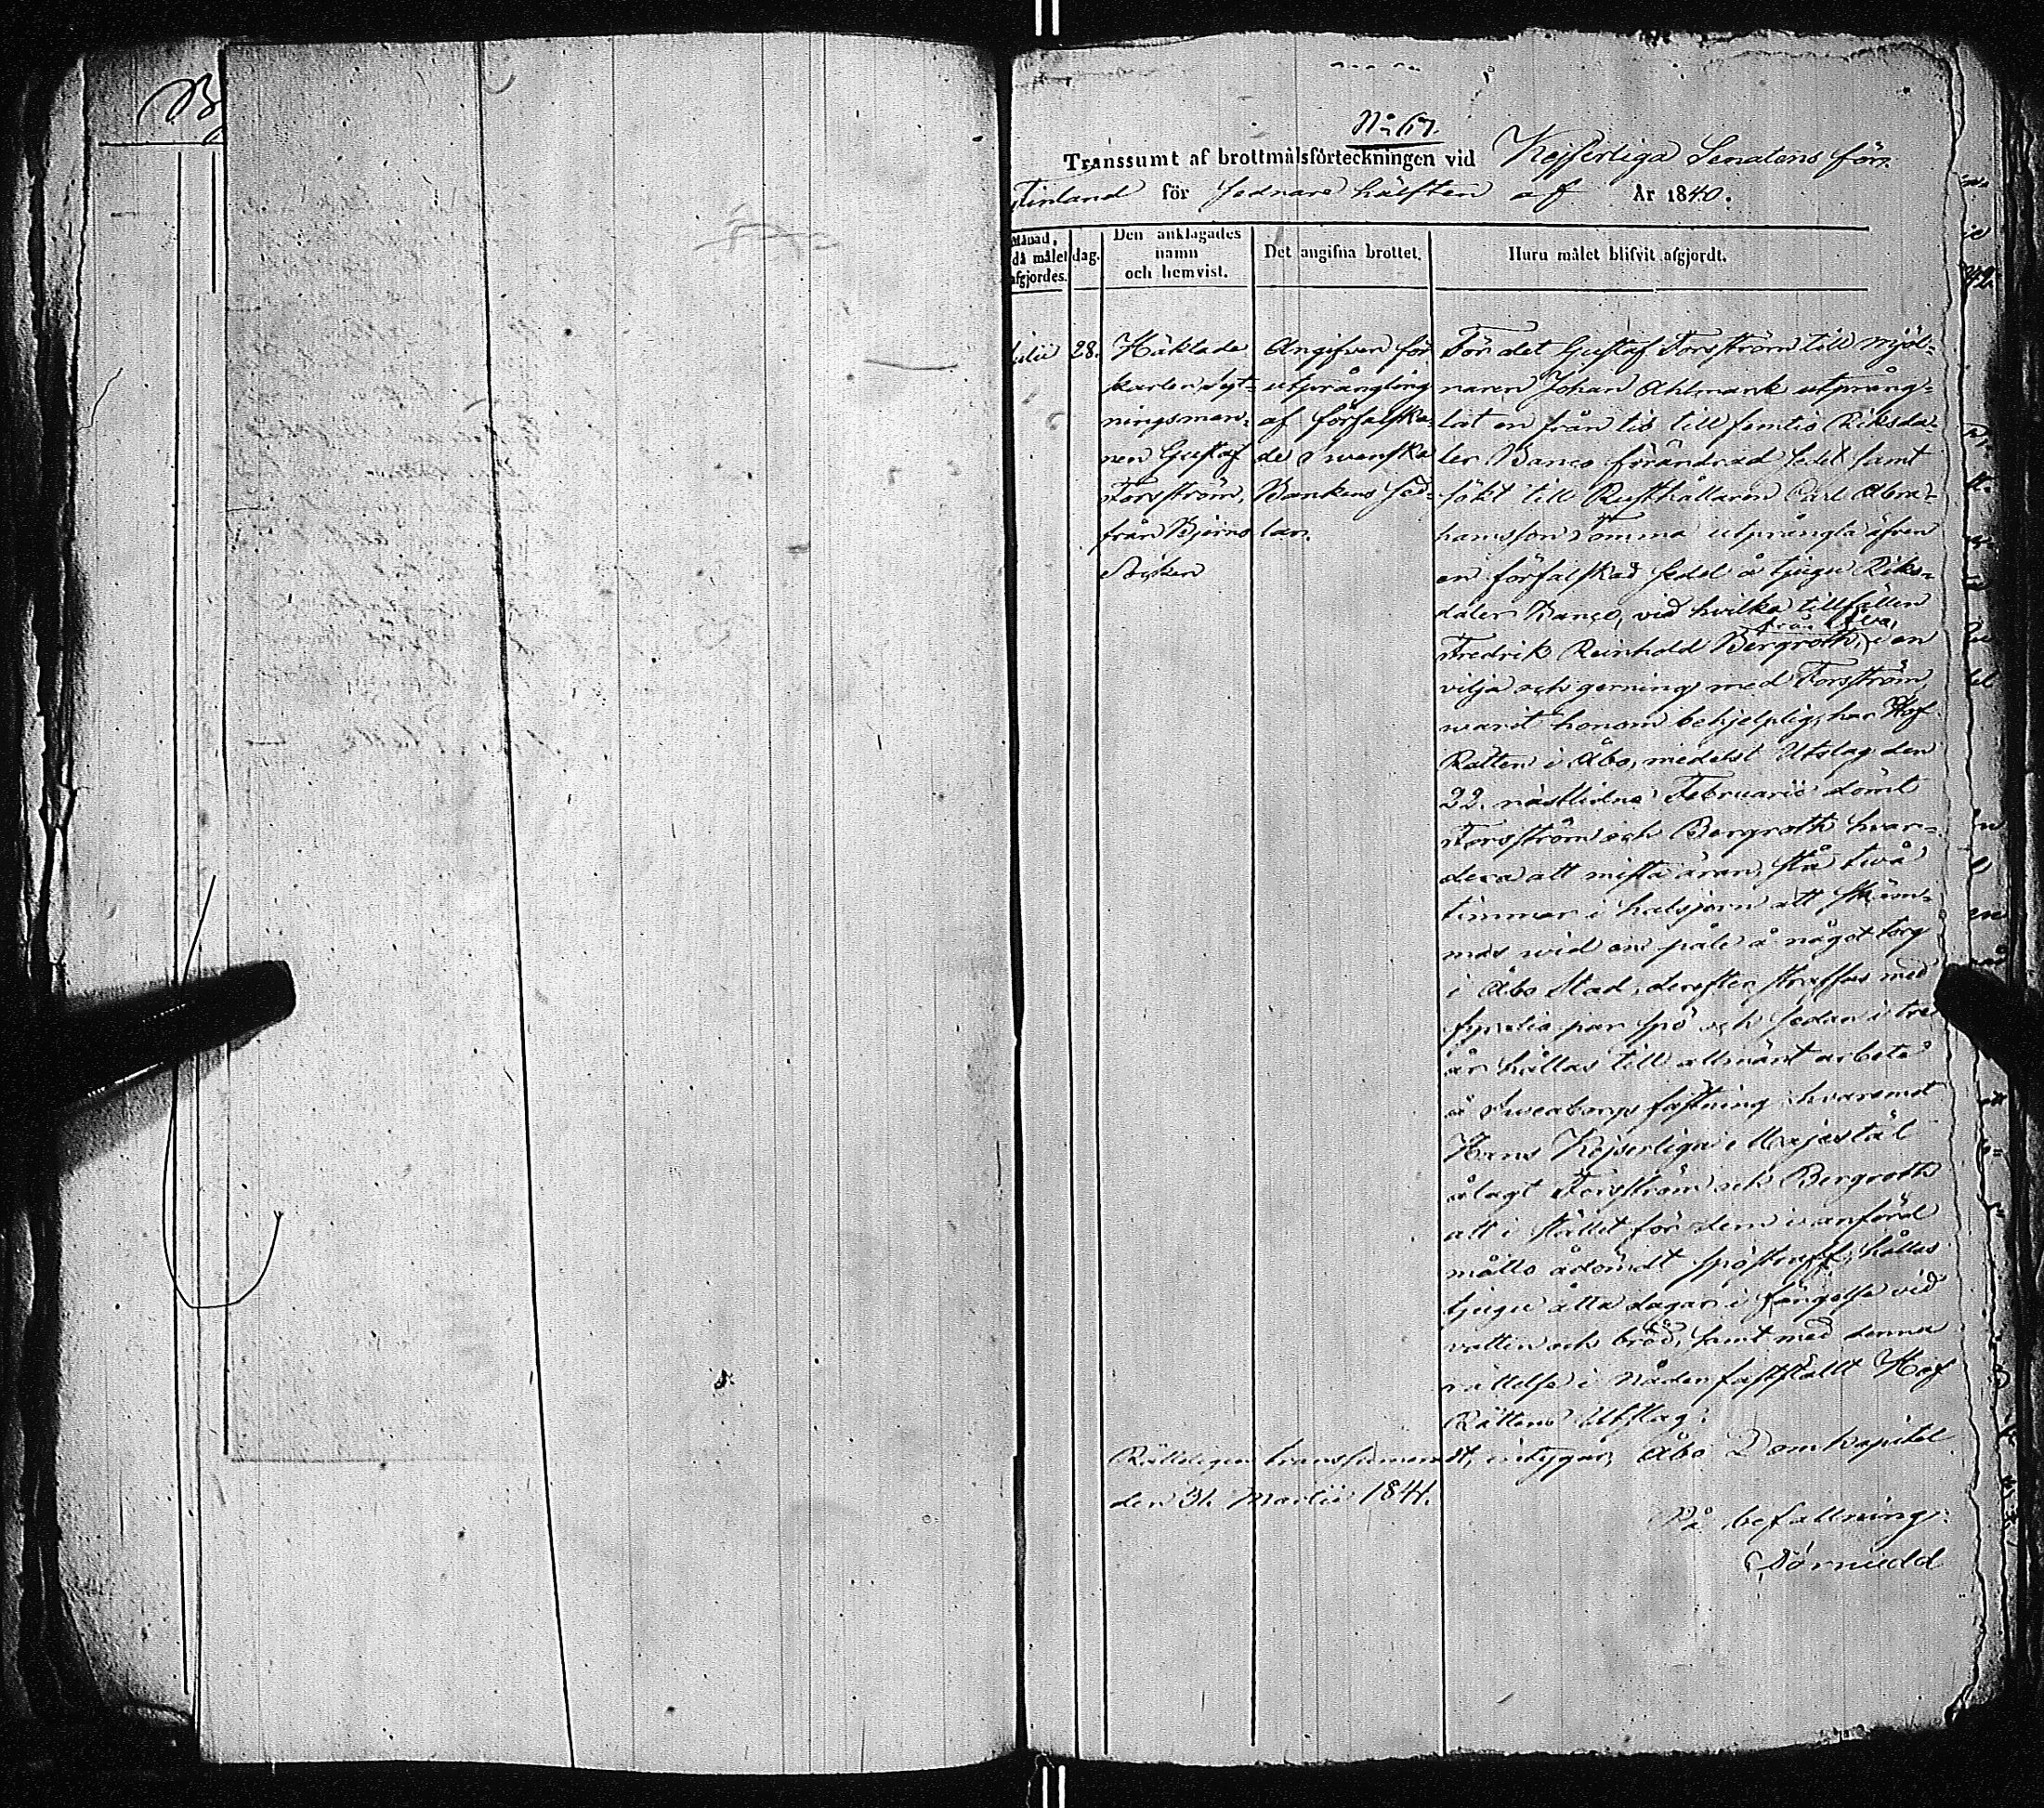 No 67.
Transsumt af brottmålsförteckningen vid Kejserliga Senatens för
Finland för sednare hälften af År 1840.
Månad, då målet afgjordes.
dag.
Den anklagades namn och hemvist.
Det angifna brottet.
Huru målet blifvit afgjordt.
Julii
28.
Häktade
karlen Syt-
ningsman-
nen Gustaf
Forsström,
från Bjerno
Socken
Angifven för
utprångling
af förfalska-
de Svenska
Bankens Sed-
lar.
För det Gustaf Forsström till Mjöl-
naren Johan Ahlmark utprång-
lat en från tio till femtio Riksda-
ler Banco förändrad sedel samt
sökt till Rusthållaren Carl Abra-
hamsson Tomma utprångla äfven
en förfalskad sedel å tjugu Riks-
daler Banco, vid hvilka tillfällen
Fredrik Reinhold Bergroth, från i en
vilja och gerning med Forsström
warit honom behjelplig, har Hof
Rätten i Åbo, medelst Utslag den
22. nästlidne Februarii dömt
Forsström och Bergroth hvar-
dera att mista äran, stå två
timmar i halsjern att skäm-
mas wid en påle å något torg
i Åbo Stad, derefter straffas med
fyratio par spö och sedan i tre
år hållas till allmänt arbete
å Sveaborgs fästning; hvaremot
Hans Kejserliga Majestät
ålagt Forsström och Bergroth
att i stället för dem i anförd
måtto ådömdt spöstraff, hållas
tjugu åtta dagar i fängelse vid
vatten och bröd, samt med denna
rättelse i Nåder fastställt Hof
Rättens Utslag.
Rätteligen transsumeradt, intygar, Åbo Domkapitel
den 31. Martii 1841.
På befallning: